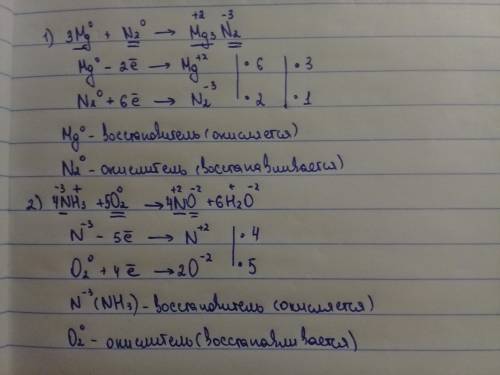 1) 3Mg⁰ + N₂⁰ → Mg₃⁺² N₂⁻³
Mg⁰ - 2ē → Mg⁺² | · 6 | · 3
N₂⁰ + 6ē → N₂⁻³ | · 2 | · 1
Mg⁰ - восстановитель (окисляется)
N₂⁰ - окислитель (восстанавливается)
2) 4N⁻³H₃⁺ + 5O₂⁰ → 4N⁺²O⁻² + 6H₂⁺O⁻²
N⁻³ - 5ē → N⁺² | · 4
O₂⁰ + 4ē → 2O⁻² | · 5
N⁻³ (NH₃) - восстановитель (окисляется)
O₂⁰ - окислитель (восстанавливается)